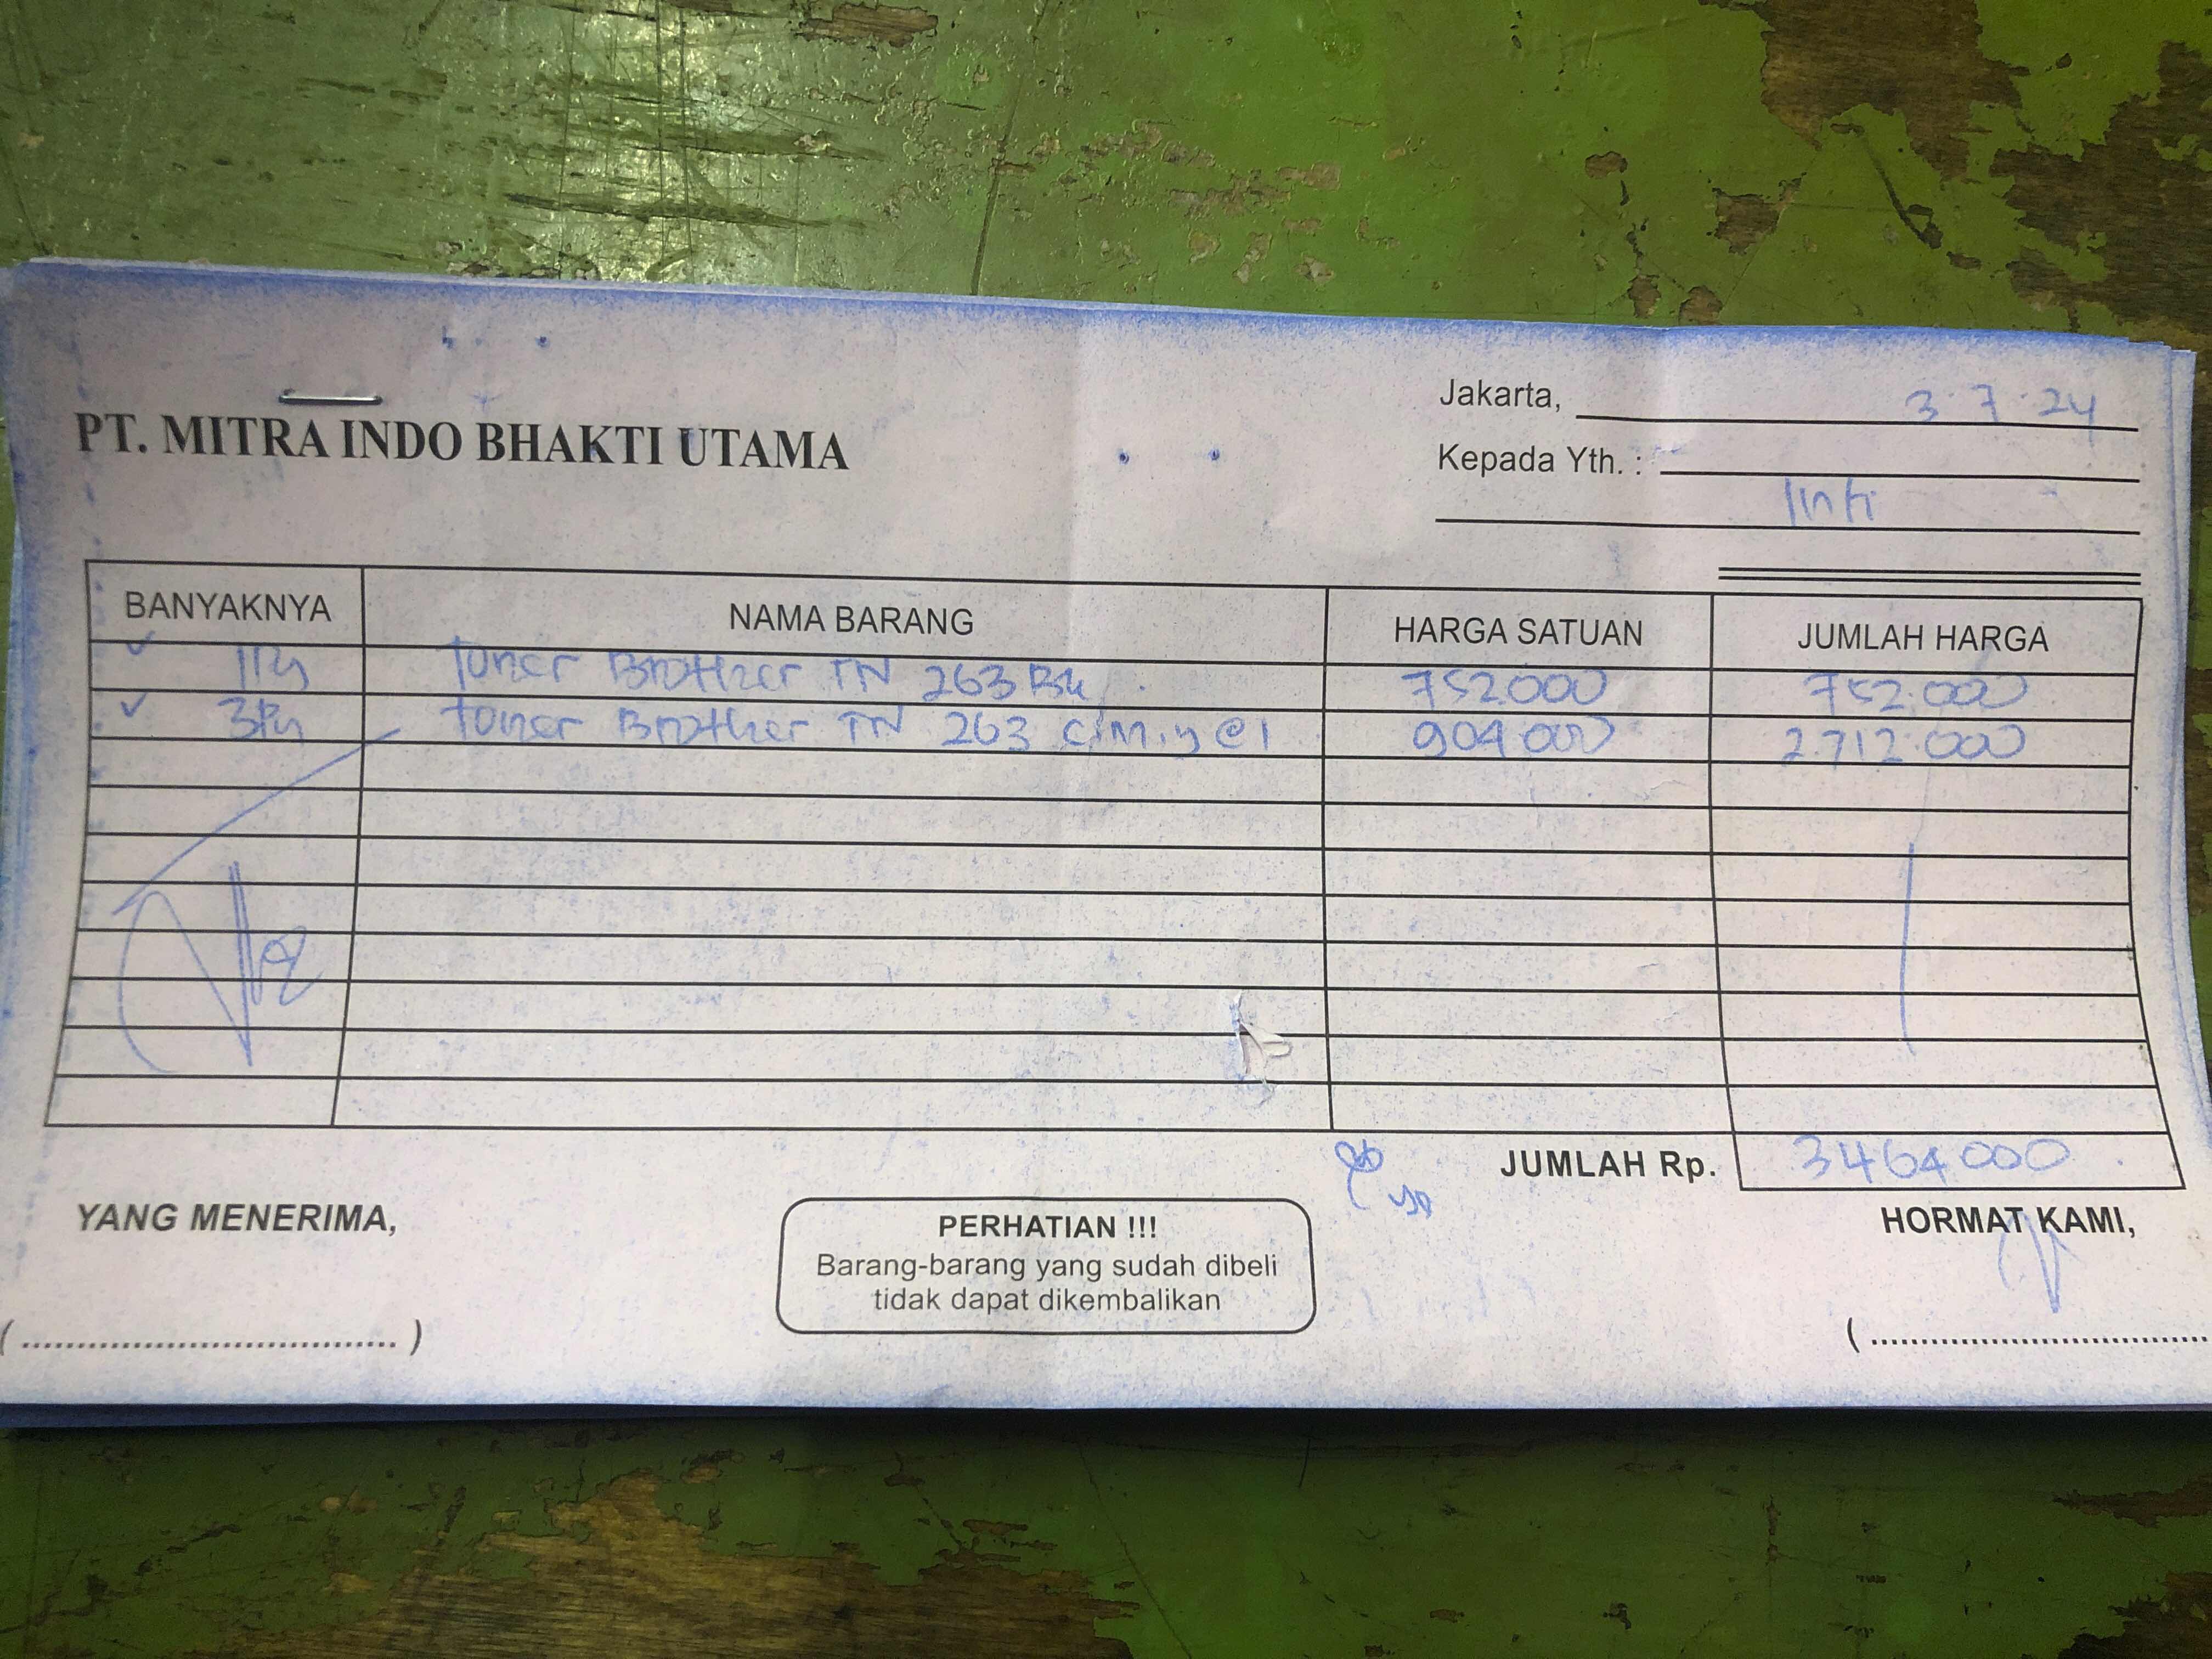 PT. MITRA INDO BHAKTI UTAMA
Jakarta, 3.7.24
Kepada Yth. :
Inti
BANYAKNYA NAMA BARANG HARGA SATUAN JUMLAH HARGA
Toner Brother TN 263 BK 752.000 752.000
Toner Brother TN 263 904.000 2.712.000
JUMLAH Rp. 3464.000
YANG MENERIMA,
PERHATIAN !!!
Barang-barang yang sudah dibeli
tidak dapat dikembalikan
HORMAT KAMI,